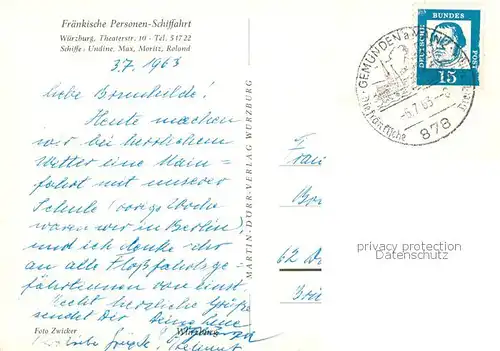 Fränkische Personen-Schiffahrt
Würzburg, Theaterstr. 10 - Tel. 5 17 22
Schiffe: Undine, Max, Moritz, Roland
3.7.1963
Liebe Brunhilde!
Heute machen
wir bei herrlichem
Wetter eine Main-
fahrt mit unserer
Schule (vorige Woche
waren wir in Berlin)
und ich denke dir
an alle Floßfahrtsge-
fährtinnen von einst.
Recht herzliche Grüße
sendet Dir Deine
Foto Zwicker
Würzburg
Helmut
MARTIN-DÖRR-VERLAG WÜRZBURG
GEMÜNDEN a. MAIN
-6.7.63-
878
DEUTSCHE BUNDESPOST
15
62
privacy protection
Datenschutz